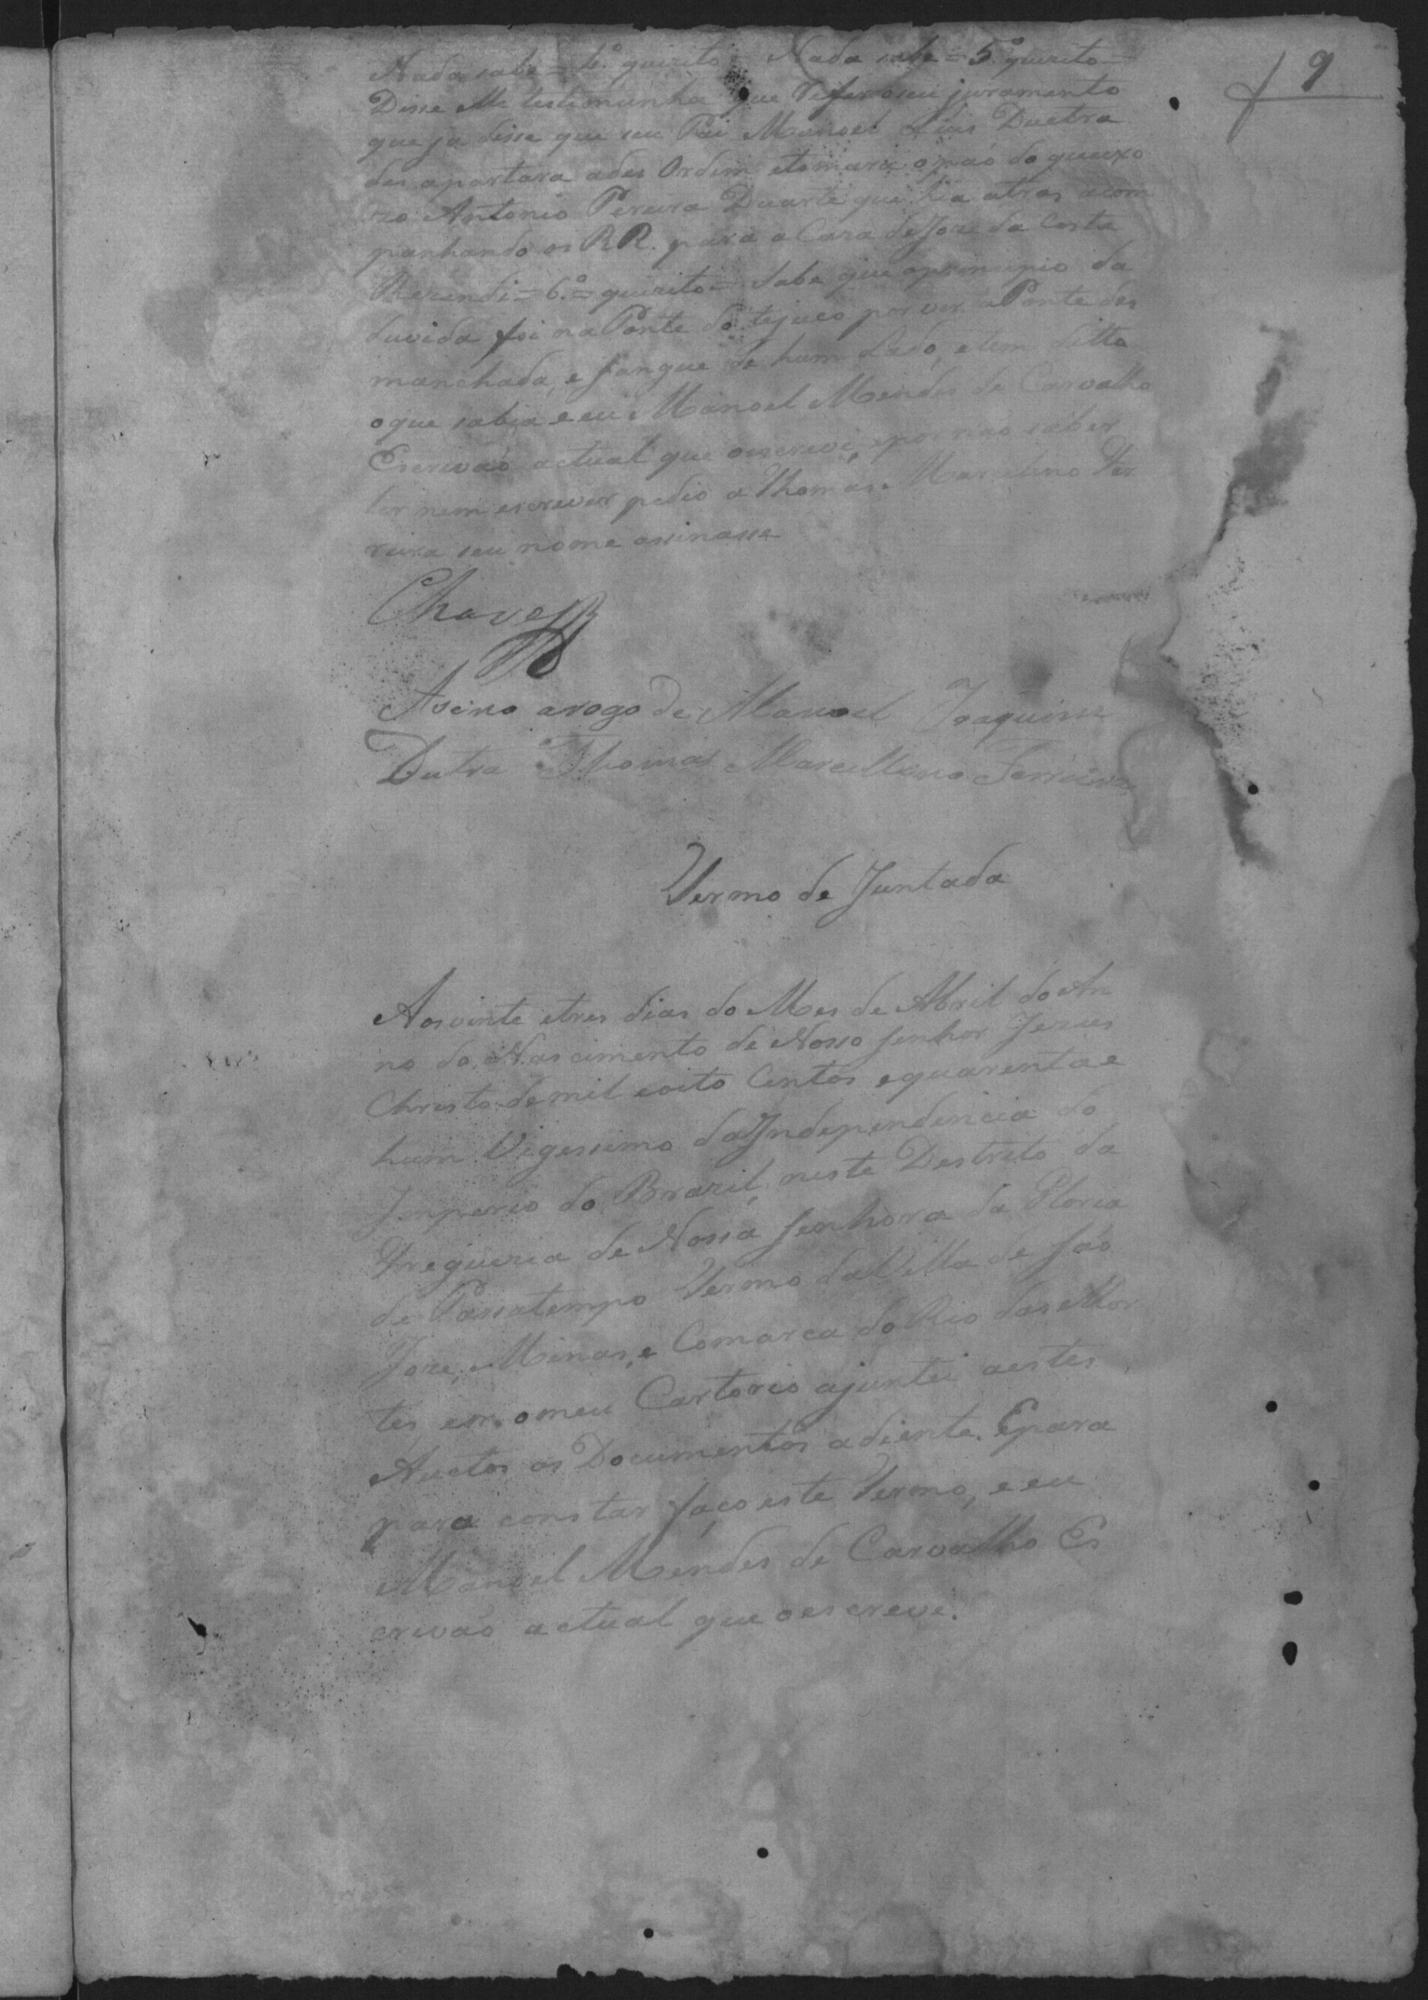 9
Nada sabe = 4.º quizito = Nada sabe = 5.º quizito =
Disse Me testimunha que debaxo seu juramento
que ja disse que seu Pai Manoel Luis Duetra
des apartara a des Ordim etomara o pao do queixo
zo Antonio Pereira Duarte que hia atras acom
panhando os RR. para a Caza de Joze da Costa
Rezendi = 6.º = quizito = Sabe que oprincipio da
duvida foi na Ponte do tejuco por ver a Ponte des
manchada, e sangue de hum Lado, etem ditto
oque sabia e eu Manoel Mendes de Carvalho
Escrivaõ actual que oescrevi, epor naõ saber
ler nem escrever pedio a Thomas Marcelino Fer
reira seu nome assinasse
Chaves
Asino arogo de Manoel Joaquim
Dutra Thomas Marcellino Ferreira
Termo de Juntada
Aosvinte etres dias do Mes de Abril do An
no do Nascimento de Nosso Senhor Jezus
Christo demil eoito Centos equarenta e
hum Vigessimo da Independencia do
Imperio do Brazil, neste Destrito da
Freguezia de Nossa Senhora da Gloria
de Passatempo Termo da Villa de Saõ
Joze, Minas, e Comarca do Rio das Mor
tes em omeu Cartorio ajuntei aestes
Auctos os Documentos adiente. Epara
para constar faço este Termo, e eu
Manoel Mendes de Carvalho Es
crivaõ actual que oescreve.